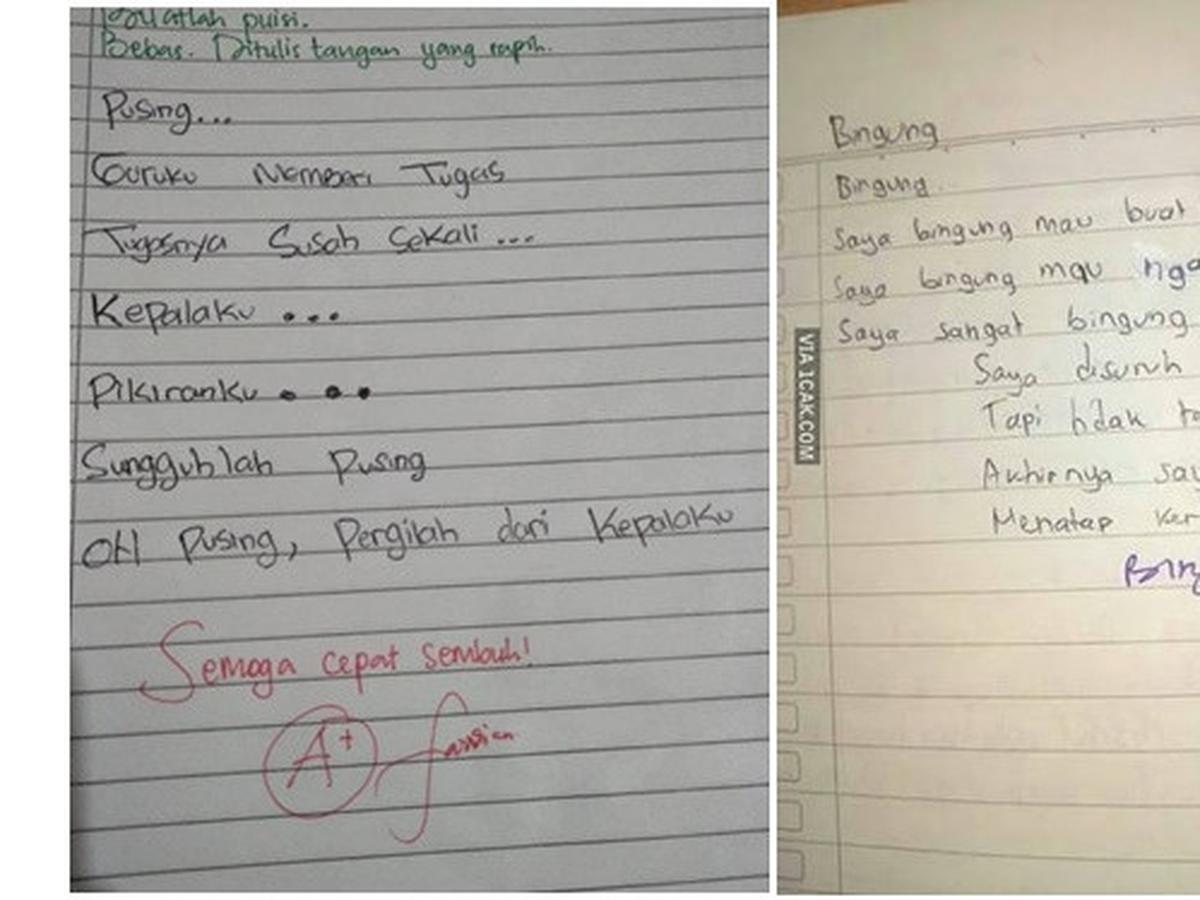 Buatlah puisi.
Bebas. Ditulis tangan yang rapih.
Pusing...
Guruku Memberi Tugas
Tugasnya Susah Sekali ...
Kepalaku ...
Pikiranku ...
Sungguhlah Pusing
OH Pusing, Pergilah dari Kepalaku
Semoga cepat sembuh!
A+
Bingung
Bingung.
Saya bingung mau buat
Saya bingung mau nga
Saya sangat bingung
Saya disuruh
Tapi tidak
Akhirnya say
Menatap
VIA 1CAK.COM